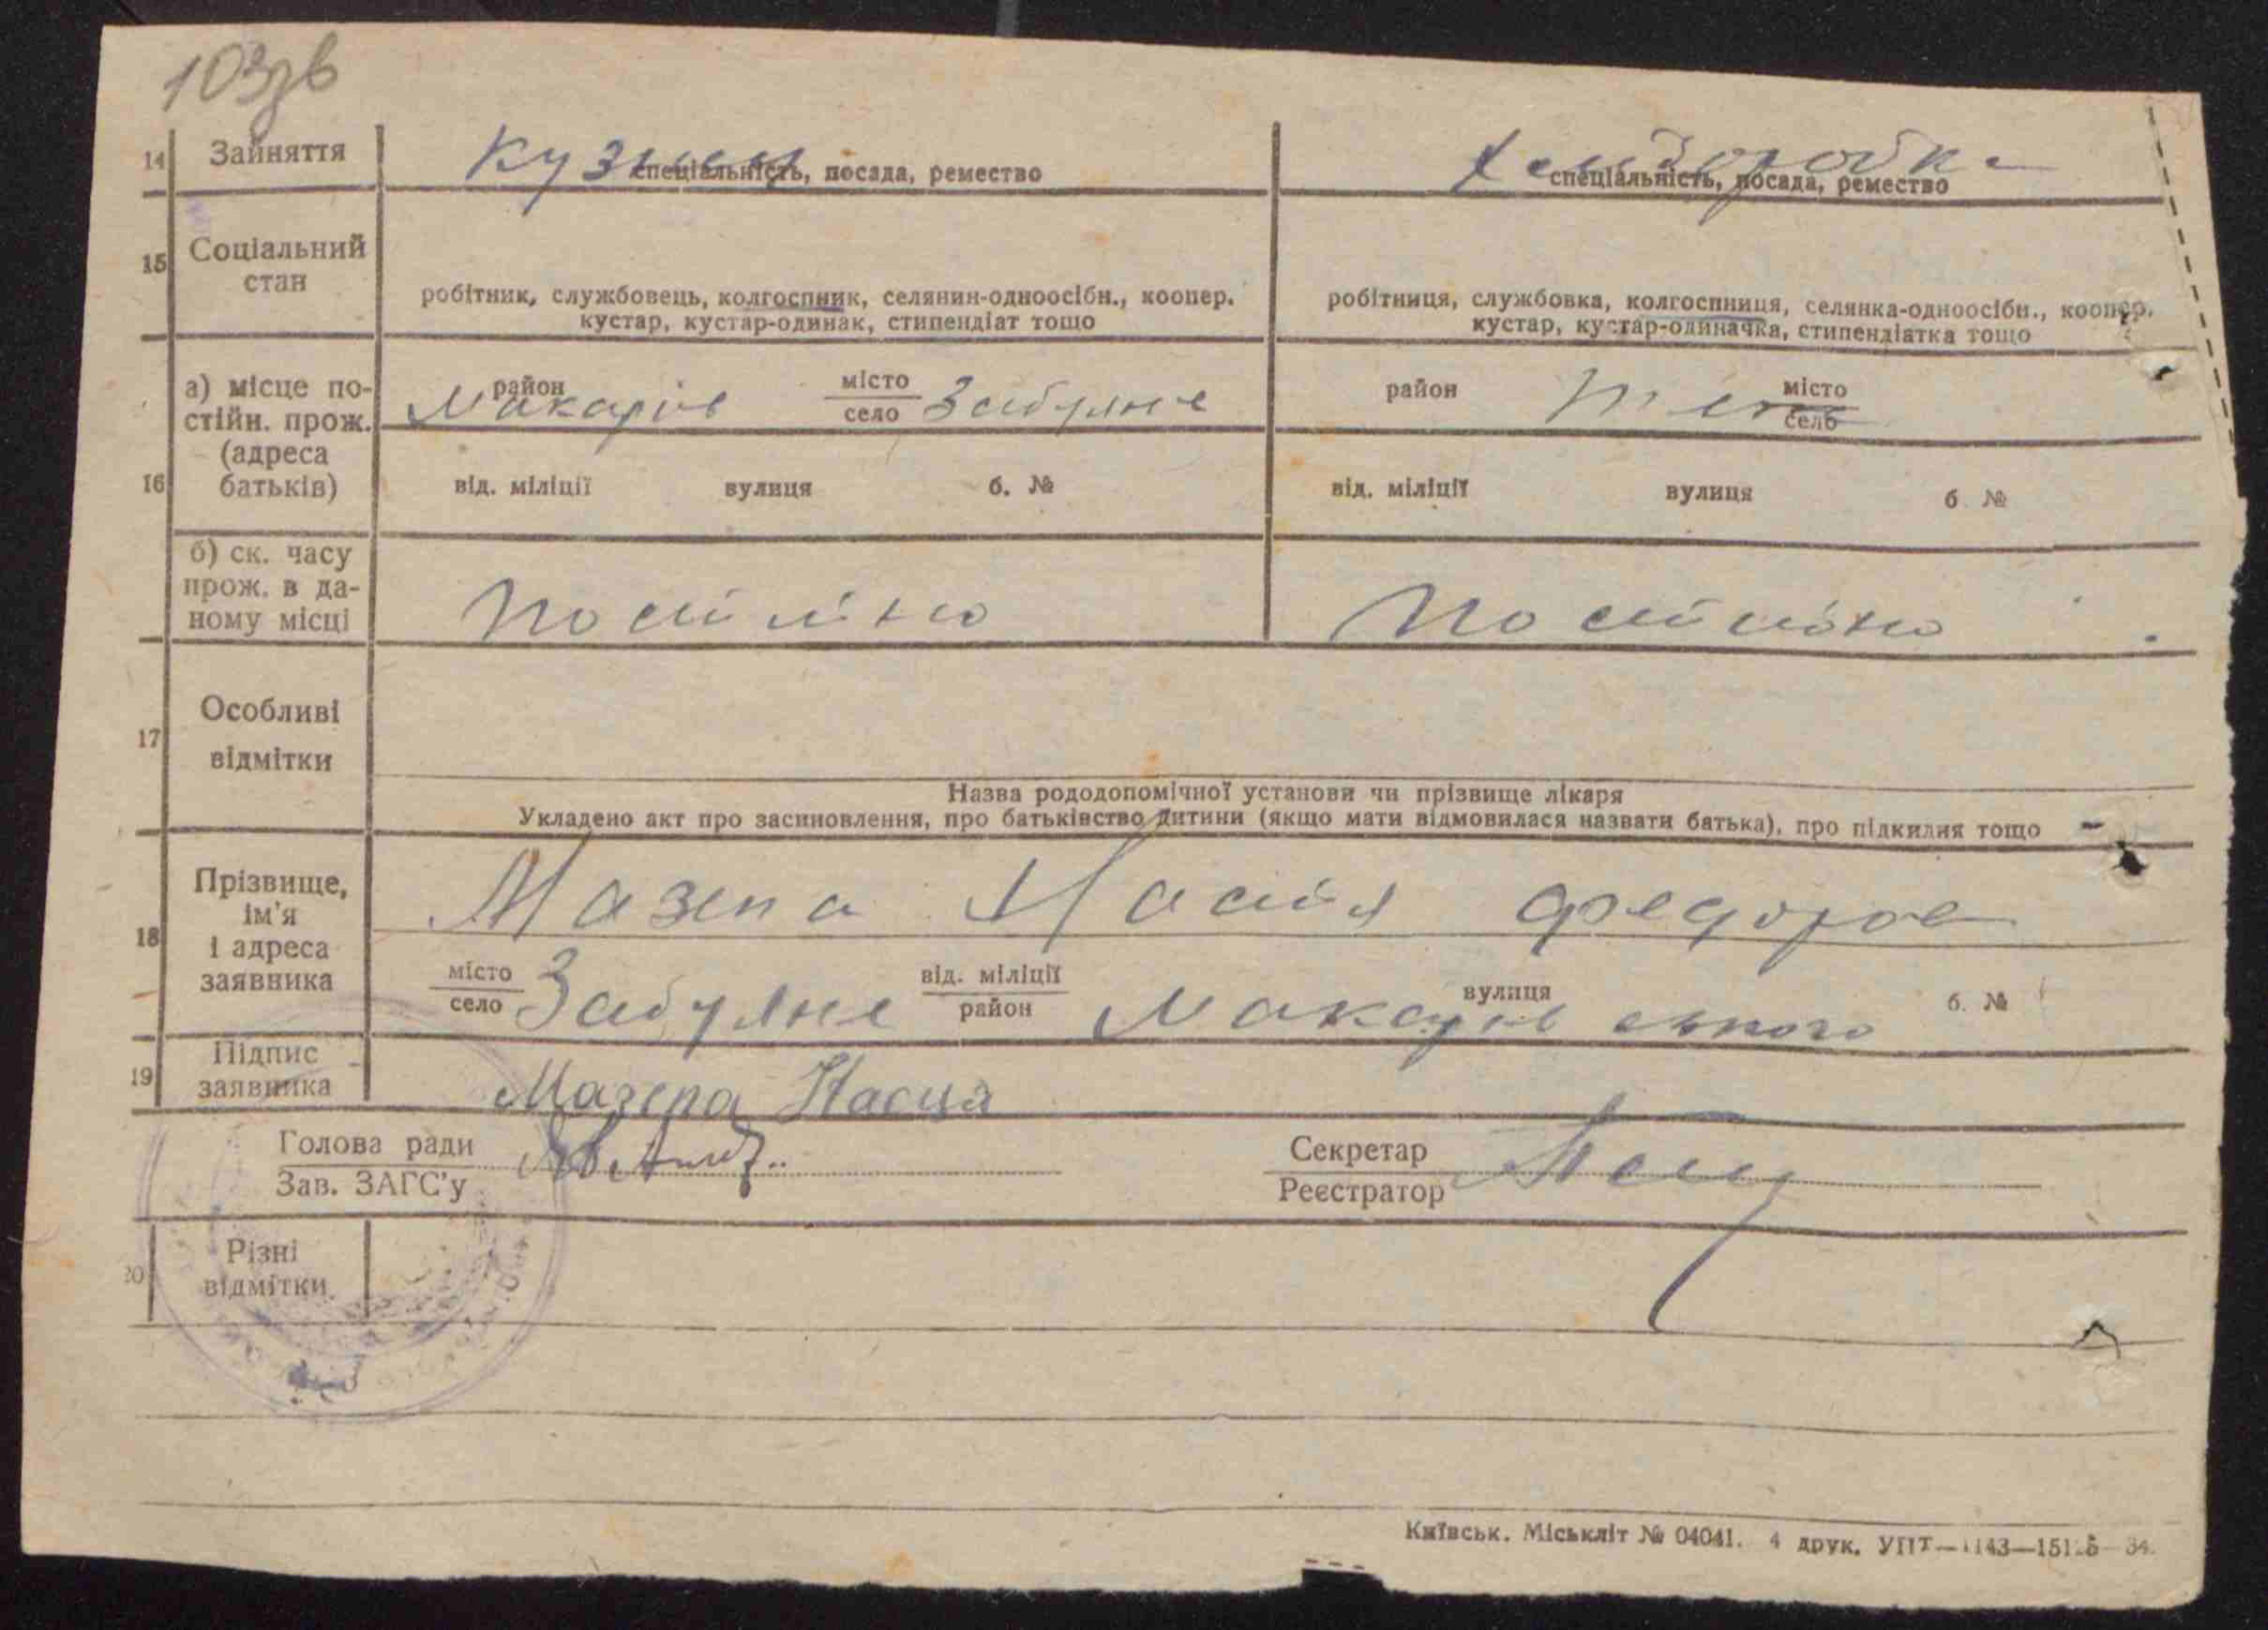 103зв
14 Зайняття
спеціальність, посада, ремество
спеціальність, посада, ремество
15 Соціальний стан
робітник, службовець, колгоспник, селянин-одноосібн., коопер.
кустар, кустар-одинак, стипендіат тощо
робітниця, службовка, колгоспниця, селянка-одноосібн., коопер.
кустар, кустар-одиначка, стипендіатка тощо
16
а) місце по-
стійн. прож.
(адреса
батьків)
район Макарів місто село Забуяне
район місто село
від. міліції вулиця б. №
від. міліції вулиця б №
б) ск. часу
прож. в да-
ному місці
Постійно
Постійно
17 Особливі
відмітки
Назва рододопомічної установи чи прізвище лікаря
Укладено акт про засиновлення, про батьківство дитини (якщо мати відмовилася назвати батька), про підкидня тощо
18
Прізвище,
ім'я
і адреса
заявника
Мазепа Настя Федоров
місто село Забуяне від. міліції район Макарівського вулиця б. №
19 Підпис
заявника
Мазепа Насця
Голова ради
Зав. ЗАГС'у
Секретар
Реєстратор
20 Різні
відмітки
Київськ. Міськліт № 04041. 4 друк. УПТ—1143—